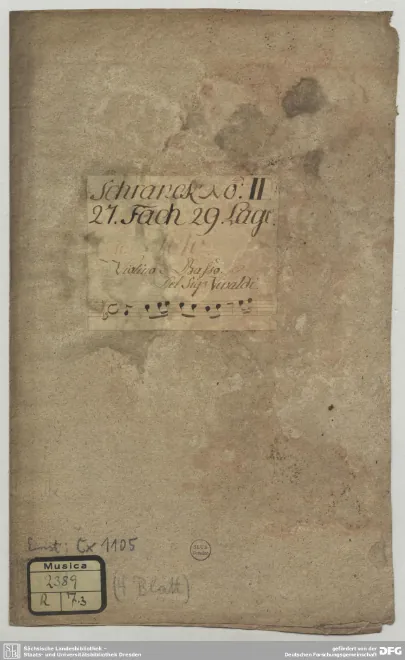 Schranck No: II
27. Fach 29. Lage.
Violino e Basso
Del Sigr Vivaldi
Einst: Cx 1105
Musica
2389
R 7.3
(4 Blatt)
Sächsische Landesbibliothek -
Staats- und Universitätsbibliothek Dresden
gefördert von der
Deutschen Forschungsgemeinschaft DFG